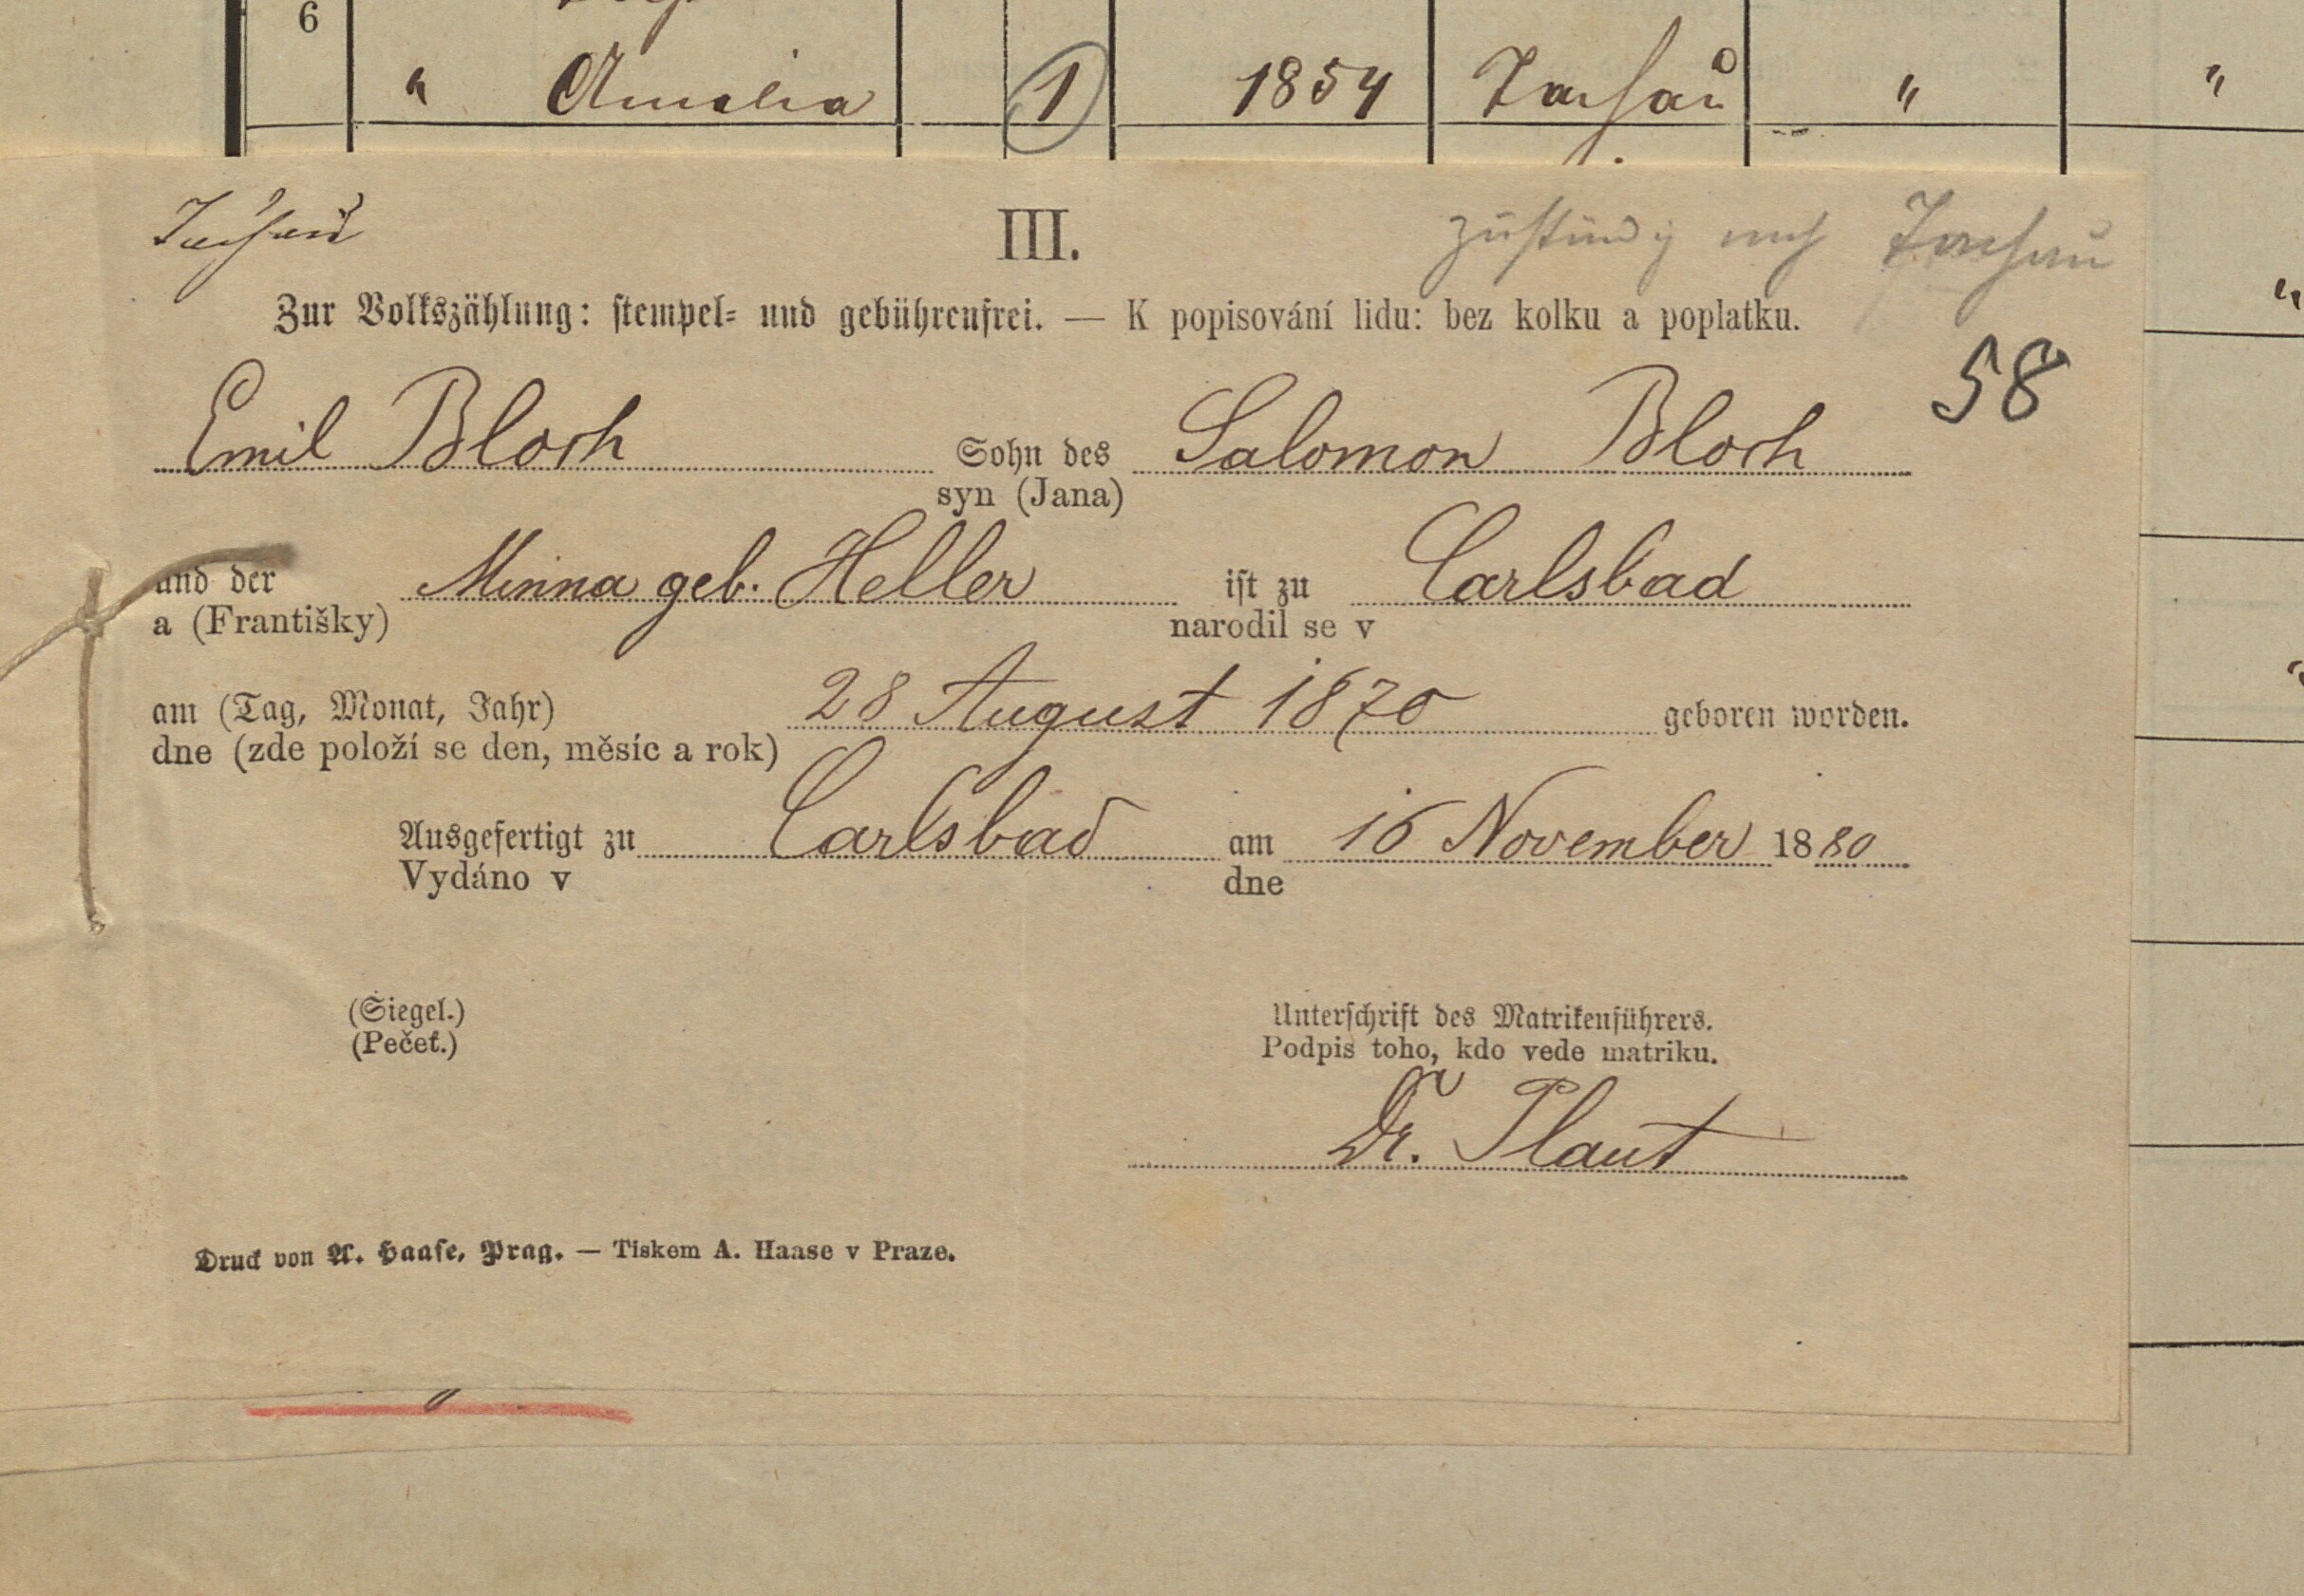 6
" Amalia 1 1854 Tachau " "
Tachau III. zuständig nach Tachau
Zur Volkszählung: stempel- und gebührenfrei. — K popisování lidu: bez kolku a poplatku.
58
Emil Bloch Sohn des Salomon Bloch
syn (Jana)
und der Minna geb. Heller ist zu Carlsbad
a (Františky) narodil se v
am (Tag, Monat, Jahr) 28 August 1870 geboren worden.
dne (zde položí se den, měsíc a rok)
Ausgefertigt zu Carlsbad am 16 November 1880
Vydáno v dne
(Siegel.) Unterschrift des Matrikenführers.
(Pečeť.) Podpis toho, kdo vede matriku.
Dr. Plaut
Druck von A. Haase, Prag. — Tiskem A. Haase v Praze.